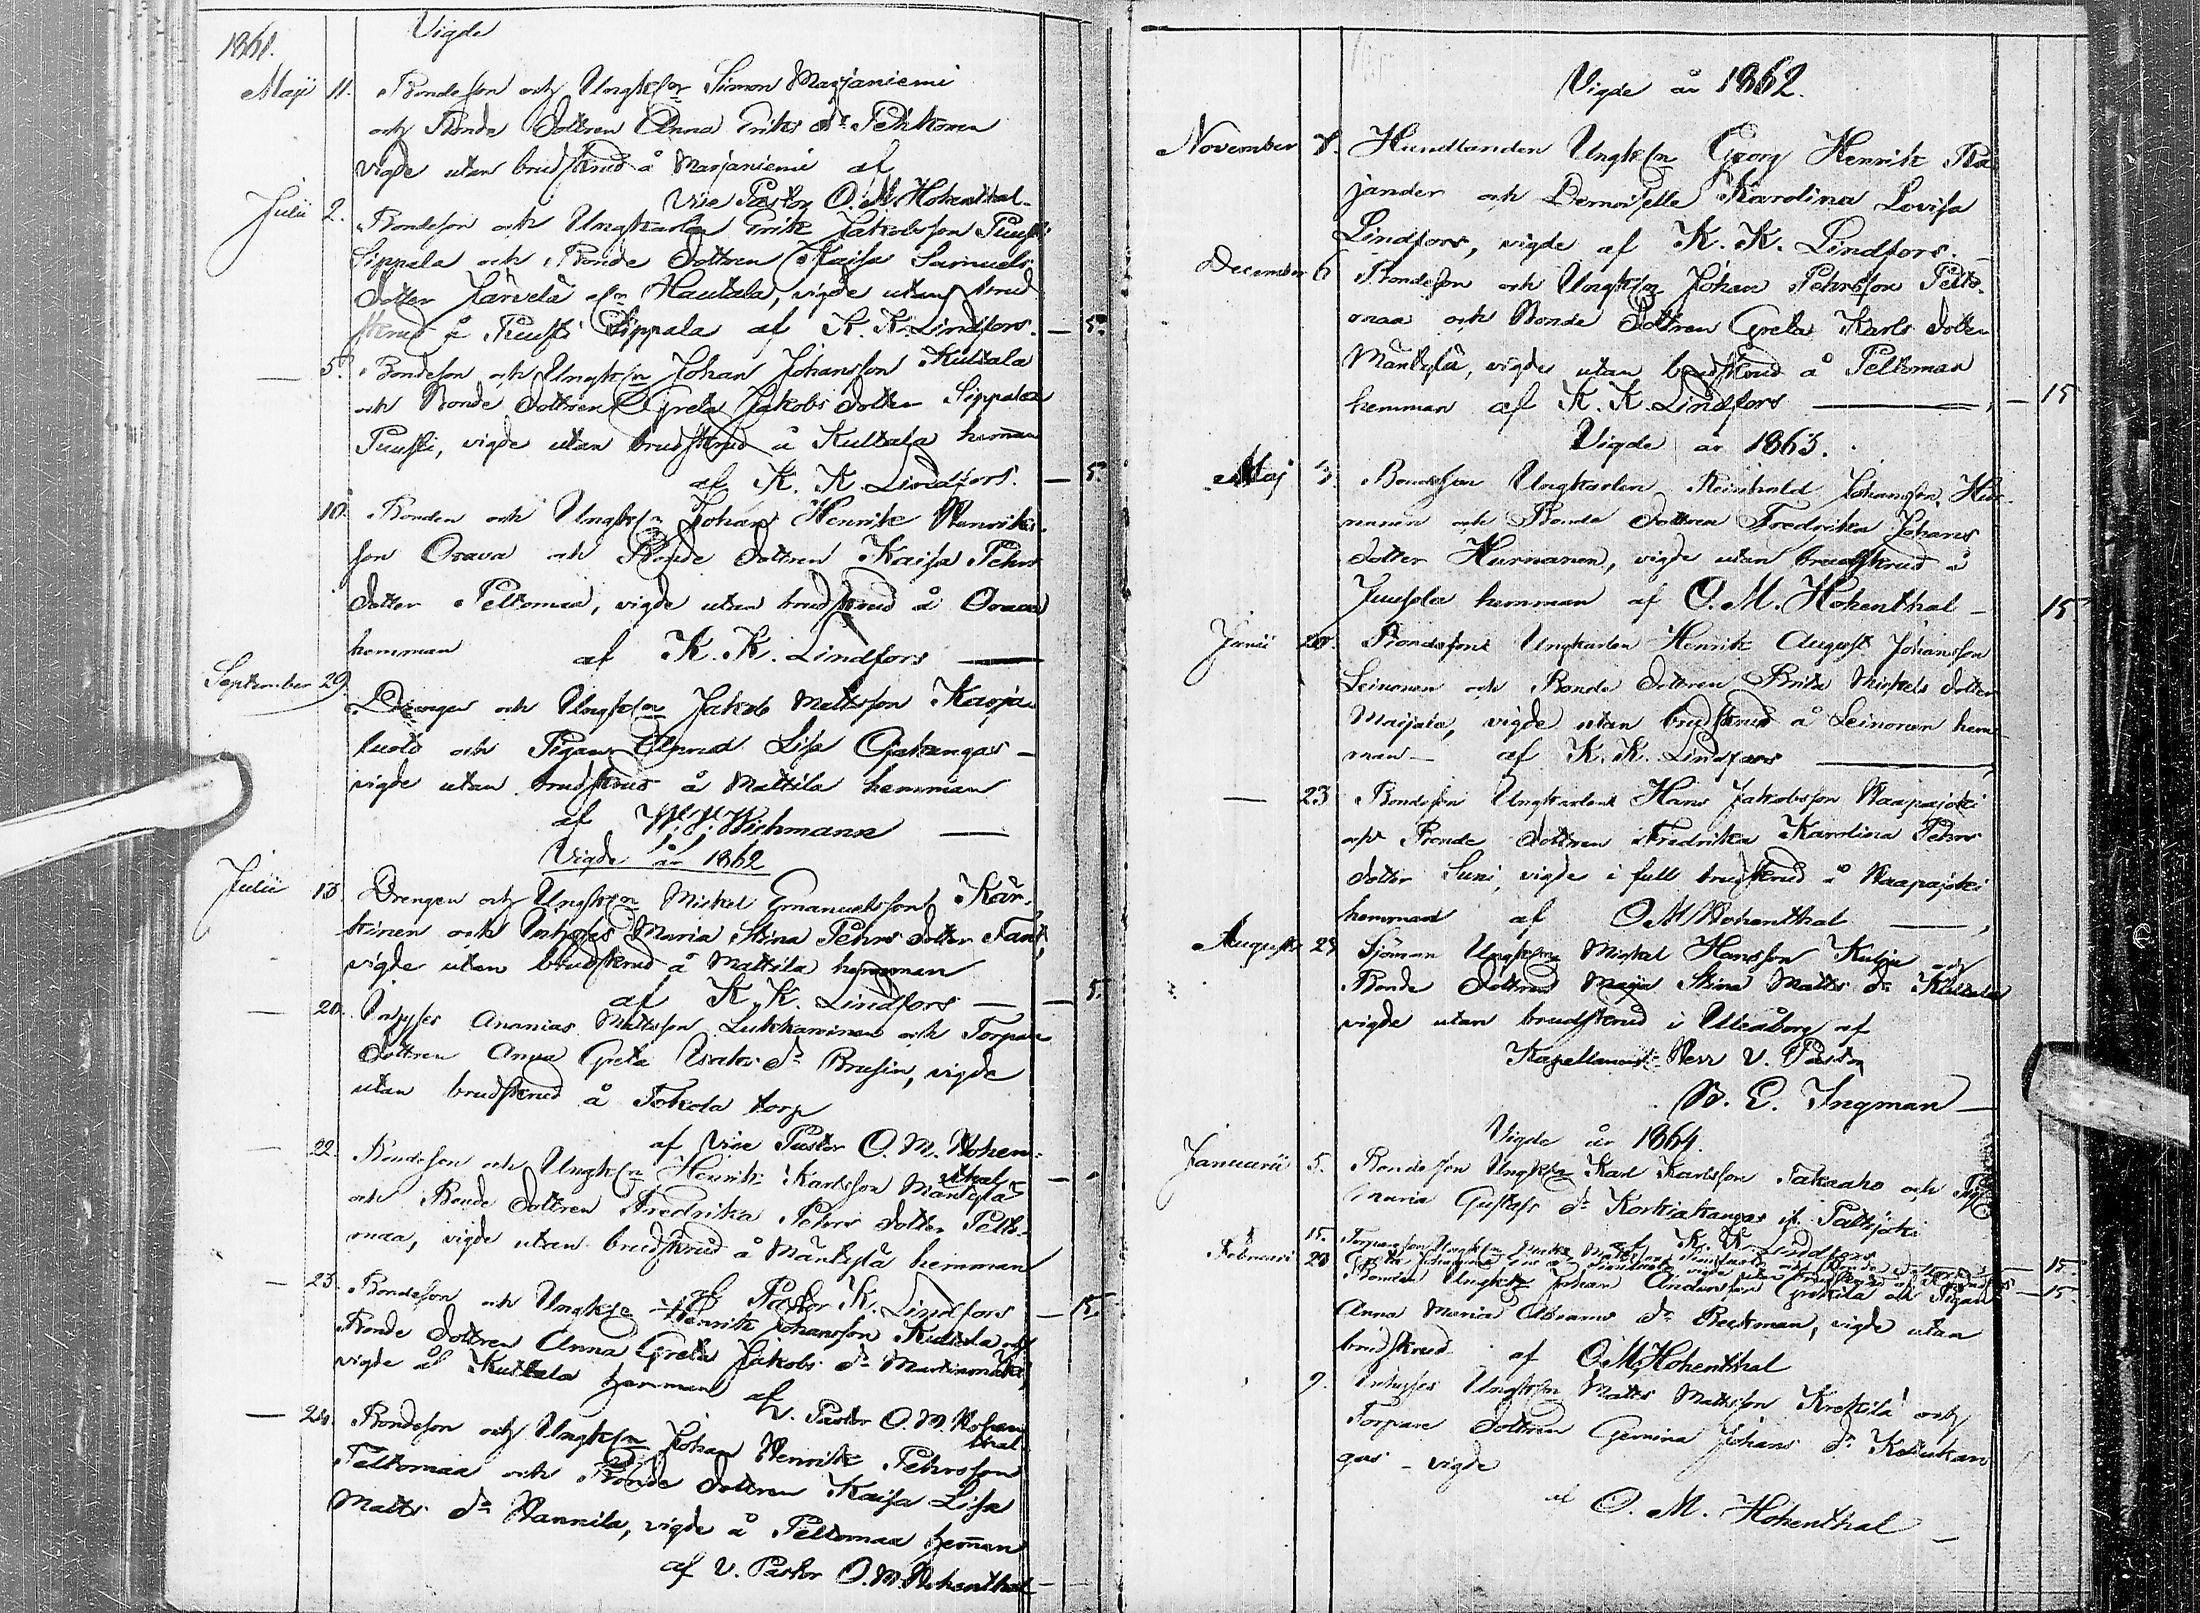 1861. Vigde
Maji 11. Bondeson och Ungk[n] Simon Marjaniemi
och Bonde Dottren Anna Eriks dr Pehkonen
vigde utan brudskrud å Marjaniemi af
Vice Pastor O. M. Hohenthal
Julii 2. Bondeson och Ungkarlen Erik Jakobsson Puusti
Sippala och Bonde Dottren Kaisa Samuels
dotter Järvelä Hautala, vigde utan brud
skrud å Puusti Sippala af K. K. Lindfors. — 5.
— 5. Bondeson och Ungk Johan Johansson Kultala
och Bonde Dottren Greta Jakobs dotter Sippala
Puusti, vigde utan brudskrud å Kultala hemman
af K. K. Lindfors. — 5.
10. Bonden och Ungk Johan Henrik Henriks
son Orava och Bonde Dottren Kaisa Pehrs
dotter Peltomaa, vigde utan brudskrud å Orava
hemman af K. K. Lindfors —
September 29. Drengen och Ungk Jakob Mattsson Karja
luoto och Pigan Anna Lisa Ojakangas —
vigde utan brudskrud å Mattila hemman
af Wichmann —
Vigde år 1862
Julii 13. Drengen och Ungk Mickel Emanuelsson Kär-
kinen och Inhyses Maria Stina Pehrs dotter Fant,
vigde utan brudskrud å Mattila hemman
af K. K. Lindfors — — 5.
— 20. Inhyses Ananias Mattsson Lukkarinen och Torpare
dottren Anna Greta Isaks dr Brusin, vigde
utan brudskrud å Tokola torp
af Vice Pastor O. M. Hohen-
thal —
— 22. Bondeson och Ungk Henrik Karlsson Mäntylä
och Bonde Dottren Fredrika Pehrs dotter Pelto-
maa, vigde utan brudskrud å Mäntylä hemman
af Pastor K. Lindfors — 15.
— 23. Bondeson och Ungk Henrik Johansson Kultala och
Bonde Dottren Anna Greta Jakobs dr Martinmäki,
vigde å Kultala hemman af
V. Pastor O. M. Hohen
thal
— 24. Bondeson och Ungk Johan Henrik Pehrsson
Peltomaa och Bonde dottren Kaisa Lisa
Matts dr Hannila, vigde å Peltomaa heman
af V. Pastor O. M. Hohenthal —
Vigde år 1862.
November 8. Handlanden Ungk Georg Henrik Ba
jander och Demoiselle Karolina Lovisa
Lindfors, vigde af K. K. Lindfors. —
December 6 Bondeson och Ungk Johan Pehrsson Pelto-
maa och Bonde Dottren Greta Karls dotter
Mäntylä, vigde utan brudskrud å Peltomaa
hemman af K. K. Lindfors — — 15
Vigde år 1863.
Maj 3. Bondeson Ungkarlen Reinhold Johansson Hur-
nanen och Bonde dottren Fredrika Johans
dotter Hurnanen, vigde utan brudskrud å
Juusola hemman af O. M. Hohenthal — 15
Junii 20. Bondeson Ungkarlen Henrik August Johansson
Leinonen och Bonde Dottren Brita Mickels dotter
Marjala, vigde utan brudskrud å Leinonen hem
man — af K. K. Lindfors —
— 23 Bondeson Ungkarlen Hans Jakobsson Haapajoki
och Bonde dottren Fredrika Karolina Pehrs
dotter Suni, vigde i full brudskrud å Haapajoki
hemman af O M Hohenthal —
Augusti 29 Sjöman Ungk Mickel Hansson Kulju och
Bonde Dottren Maija Stina Matts dr Kultala
vigde utan brudskrud i Uleåborg af
Kapellanen Herr V. Pastor
E. Ingman —
Vigde år 1864.
Januarii 5. Bondeson Ungk Karl Karlsson Takaaho och
Maria Gustafs dr Korkiakangas i Paltajoki
af K. K. Lindfors
15. — 15
Februari 20 Bonden Ungk Johan Andersson Grekilä och Pigan — 15
Anna Maria Abrams dr Beckman, vigde utan
brudskrud af O. M. Hohenthal
9. Inhyses Ungk Matts Mattsson Krekilä och
Torpare Dottren Gemina Johans dr Keltukan
gas — vigde
af O. M. Hohenthal —